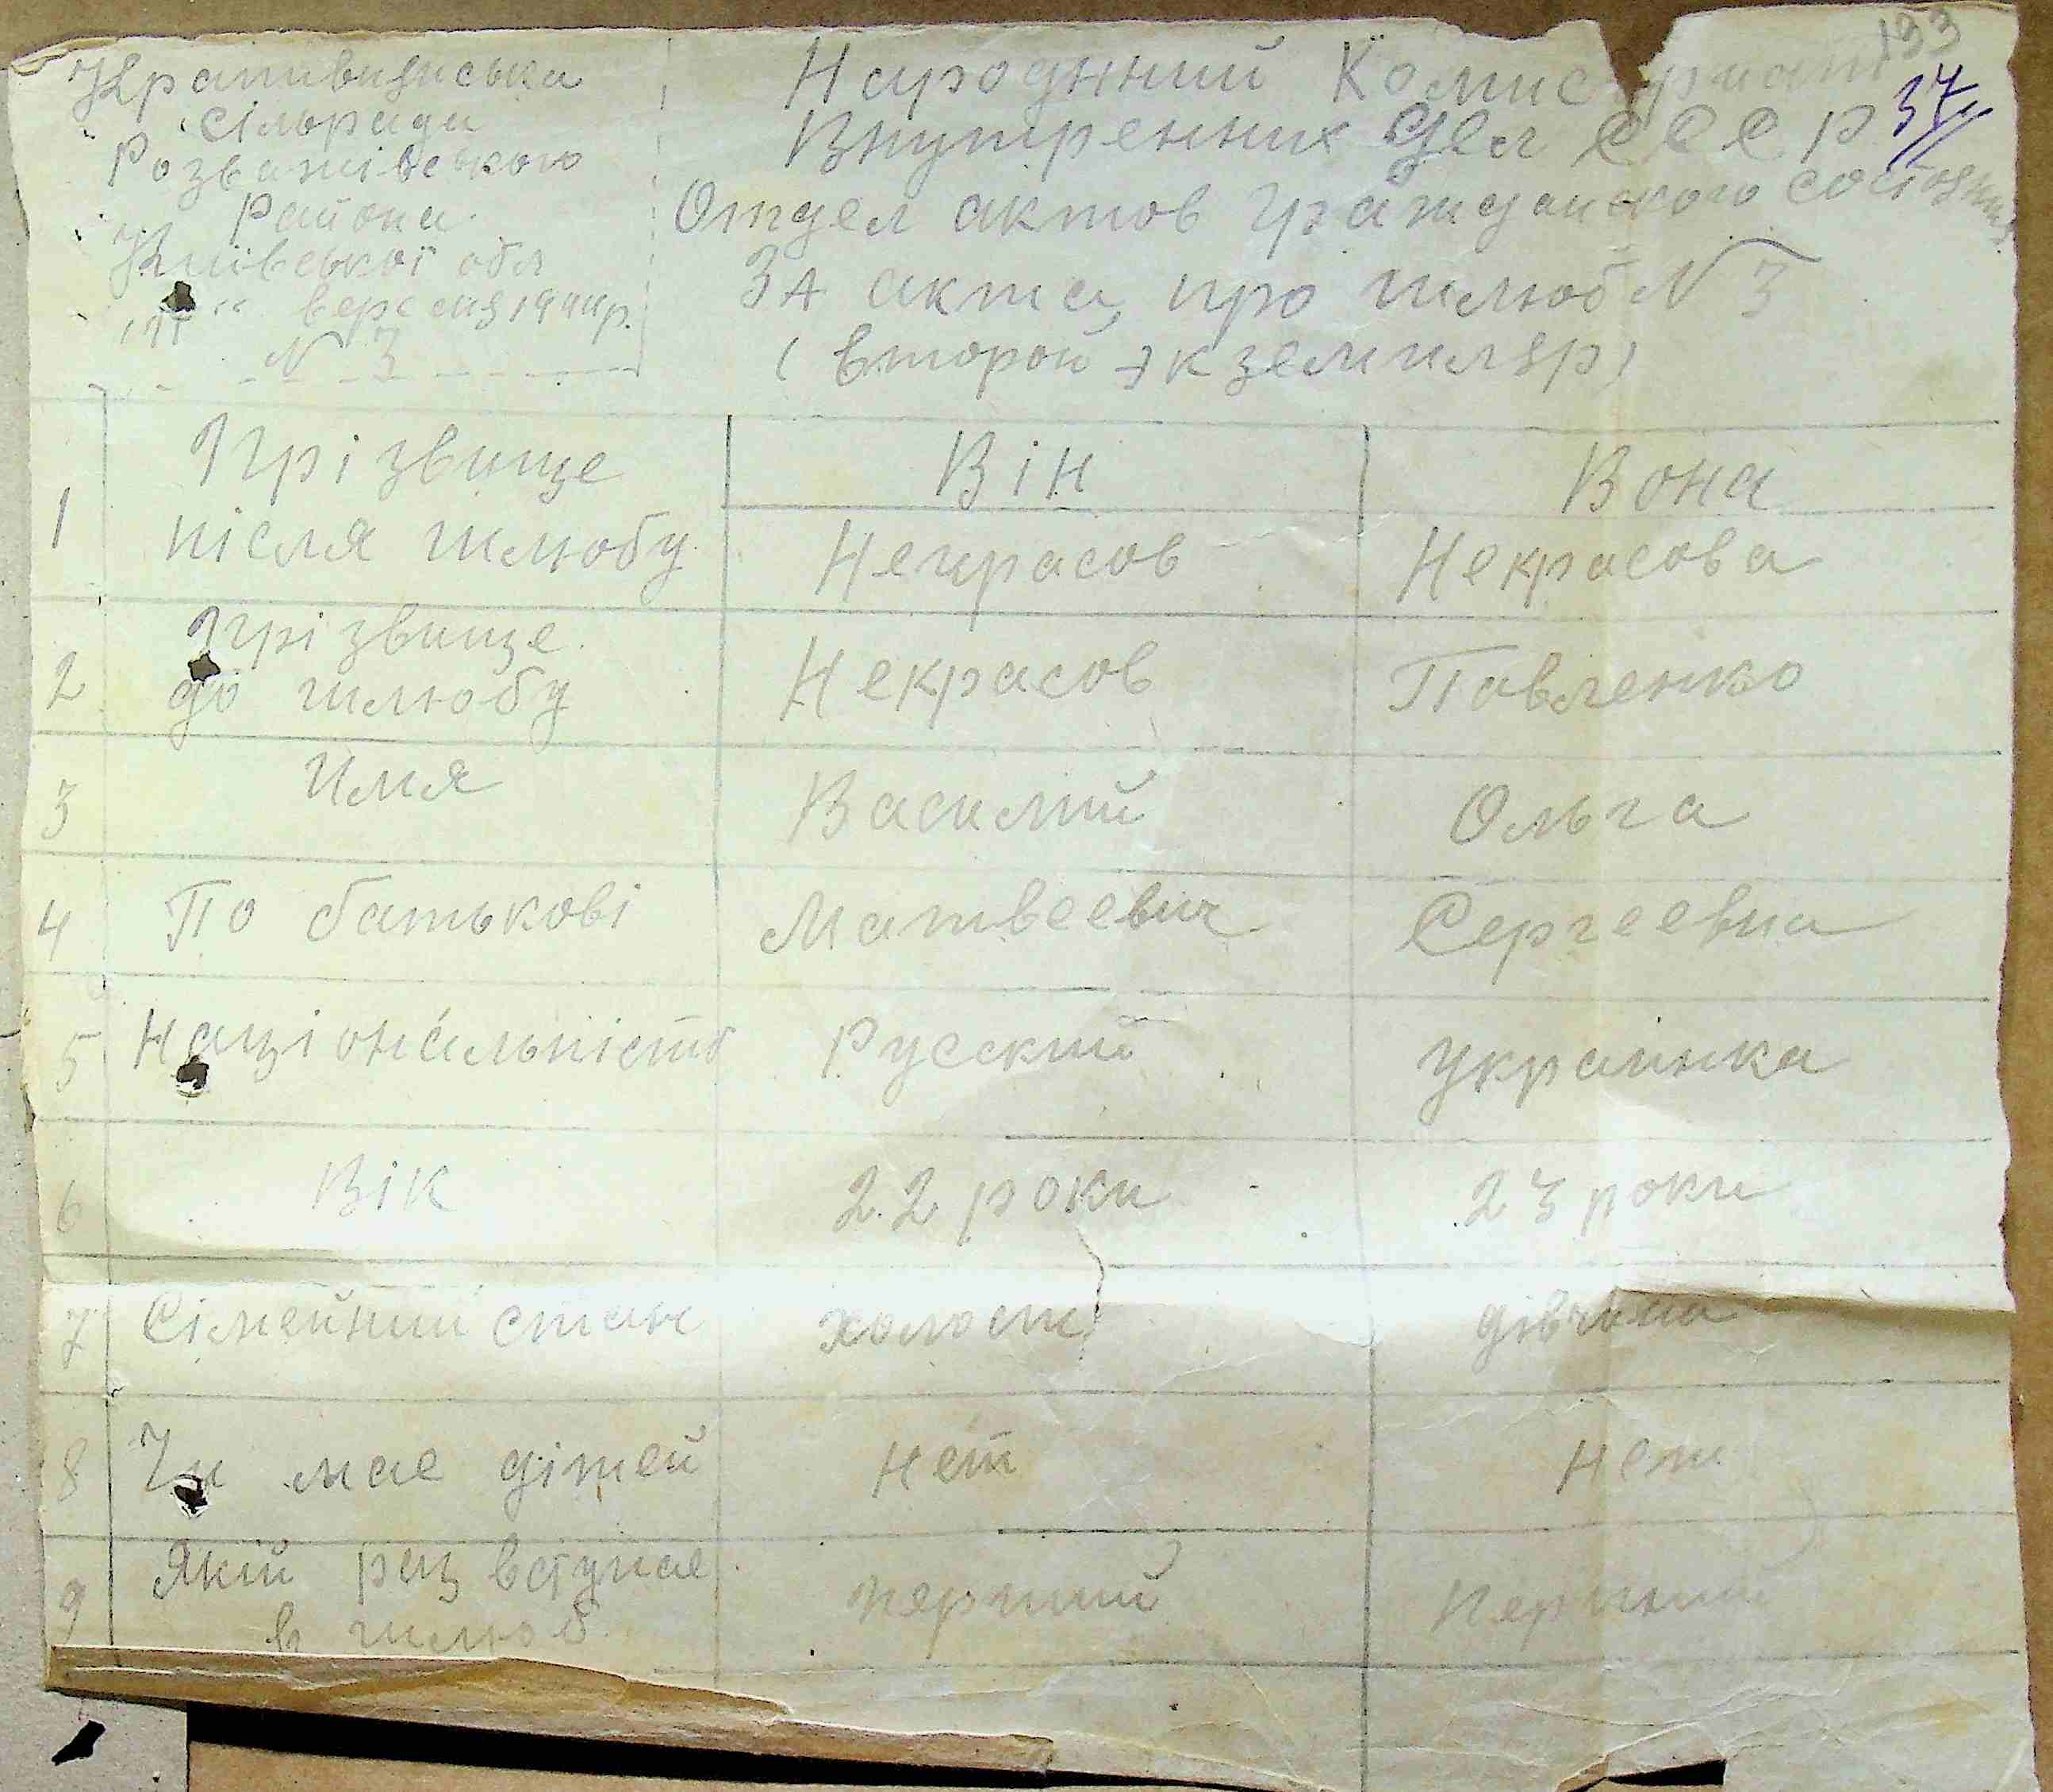 133
37
Крапивнянська
сільрада
Розважівського
району
Київської обл
" вересня 1944р.
N 3
Народнний Комисариат
Внутренних Дел СССР
Отдел актов гражданского состояния
ЗА акта про шлюб N 3
(второй экземпляр)
1 Прізвище після шлюбу
Він Вона
Некрасов Некрасова
2 Прізвище до шлюбу Некрасов Павленко
3 Имя Василий Ольга
4 По батькові Матвеевич Сергеевна
5 Національність Русский Украинка
6 Вік 22 роки 23 роки
7 Сімейний стан холост дівчина
8 Чи має дітей нет нет
9 Якій раз вступає в шлюб перший перший